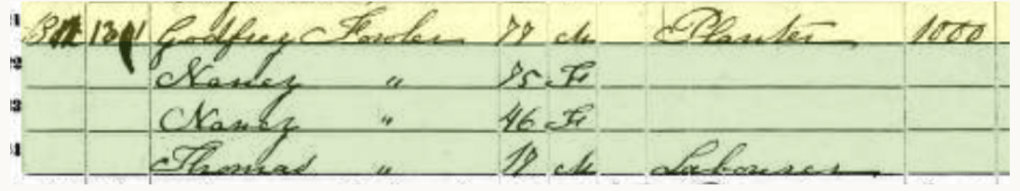 Godfrey Fowler 77 M Planter 1000
Nancy " 75 F
Nancy " 46 F
Thomas " 18 M Labourer